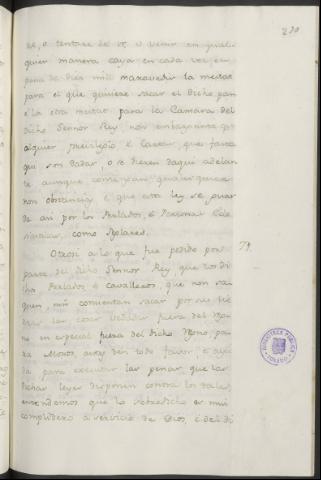 230
re, o tentare de ir, o venir en qual
quier manera caya en cada vez en
pena de diez mill maravedis la meitat
para el que quisiere sacar el dicho pan
è la otra meitat para la Camara del
dicho Sennor Rey, non embargante qua
alquier privilegio è Cartas, que fasta
qui son dadas, o se dieren daqui adelan
te aunque contengan qualesquiera
non obstancias è que esta ley se guar
de asi por los Prelados, è Personas Ecle
siasticas, como Seglares.
Otrosi a lo que fue pedido por 79.
parte del dicho Sennor Rey, que los di
chos Prelados è cavalleros, que non sa
quen, nin consientan sacar por sus tie
rras las cosas vedadas fuera del Rey
no en especial fuera del dicho Regno, pa
ra Moros, antes den todo favor è ayu
da para executar las penas, que las
dichas leyes disponen contra los tales,
entendemos que lo sobredicho es mui
complidero a servicio de Dios, è del di
BIBLIOTECA PUBLICA
TOLEDO